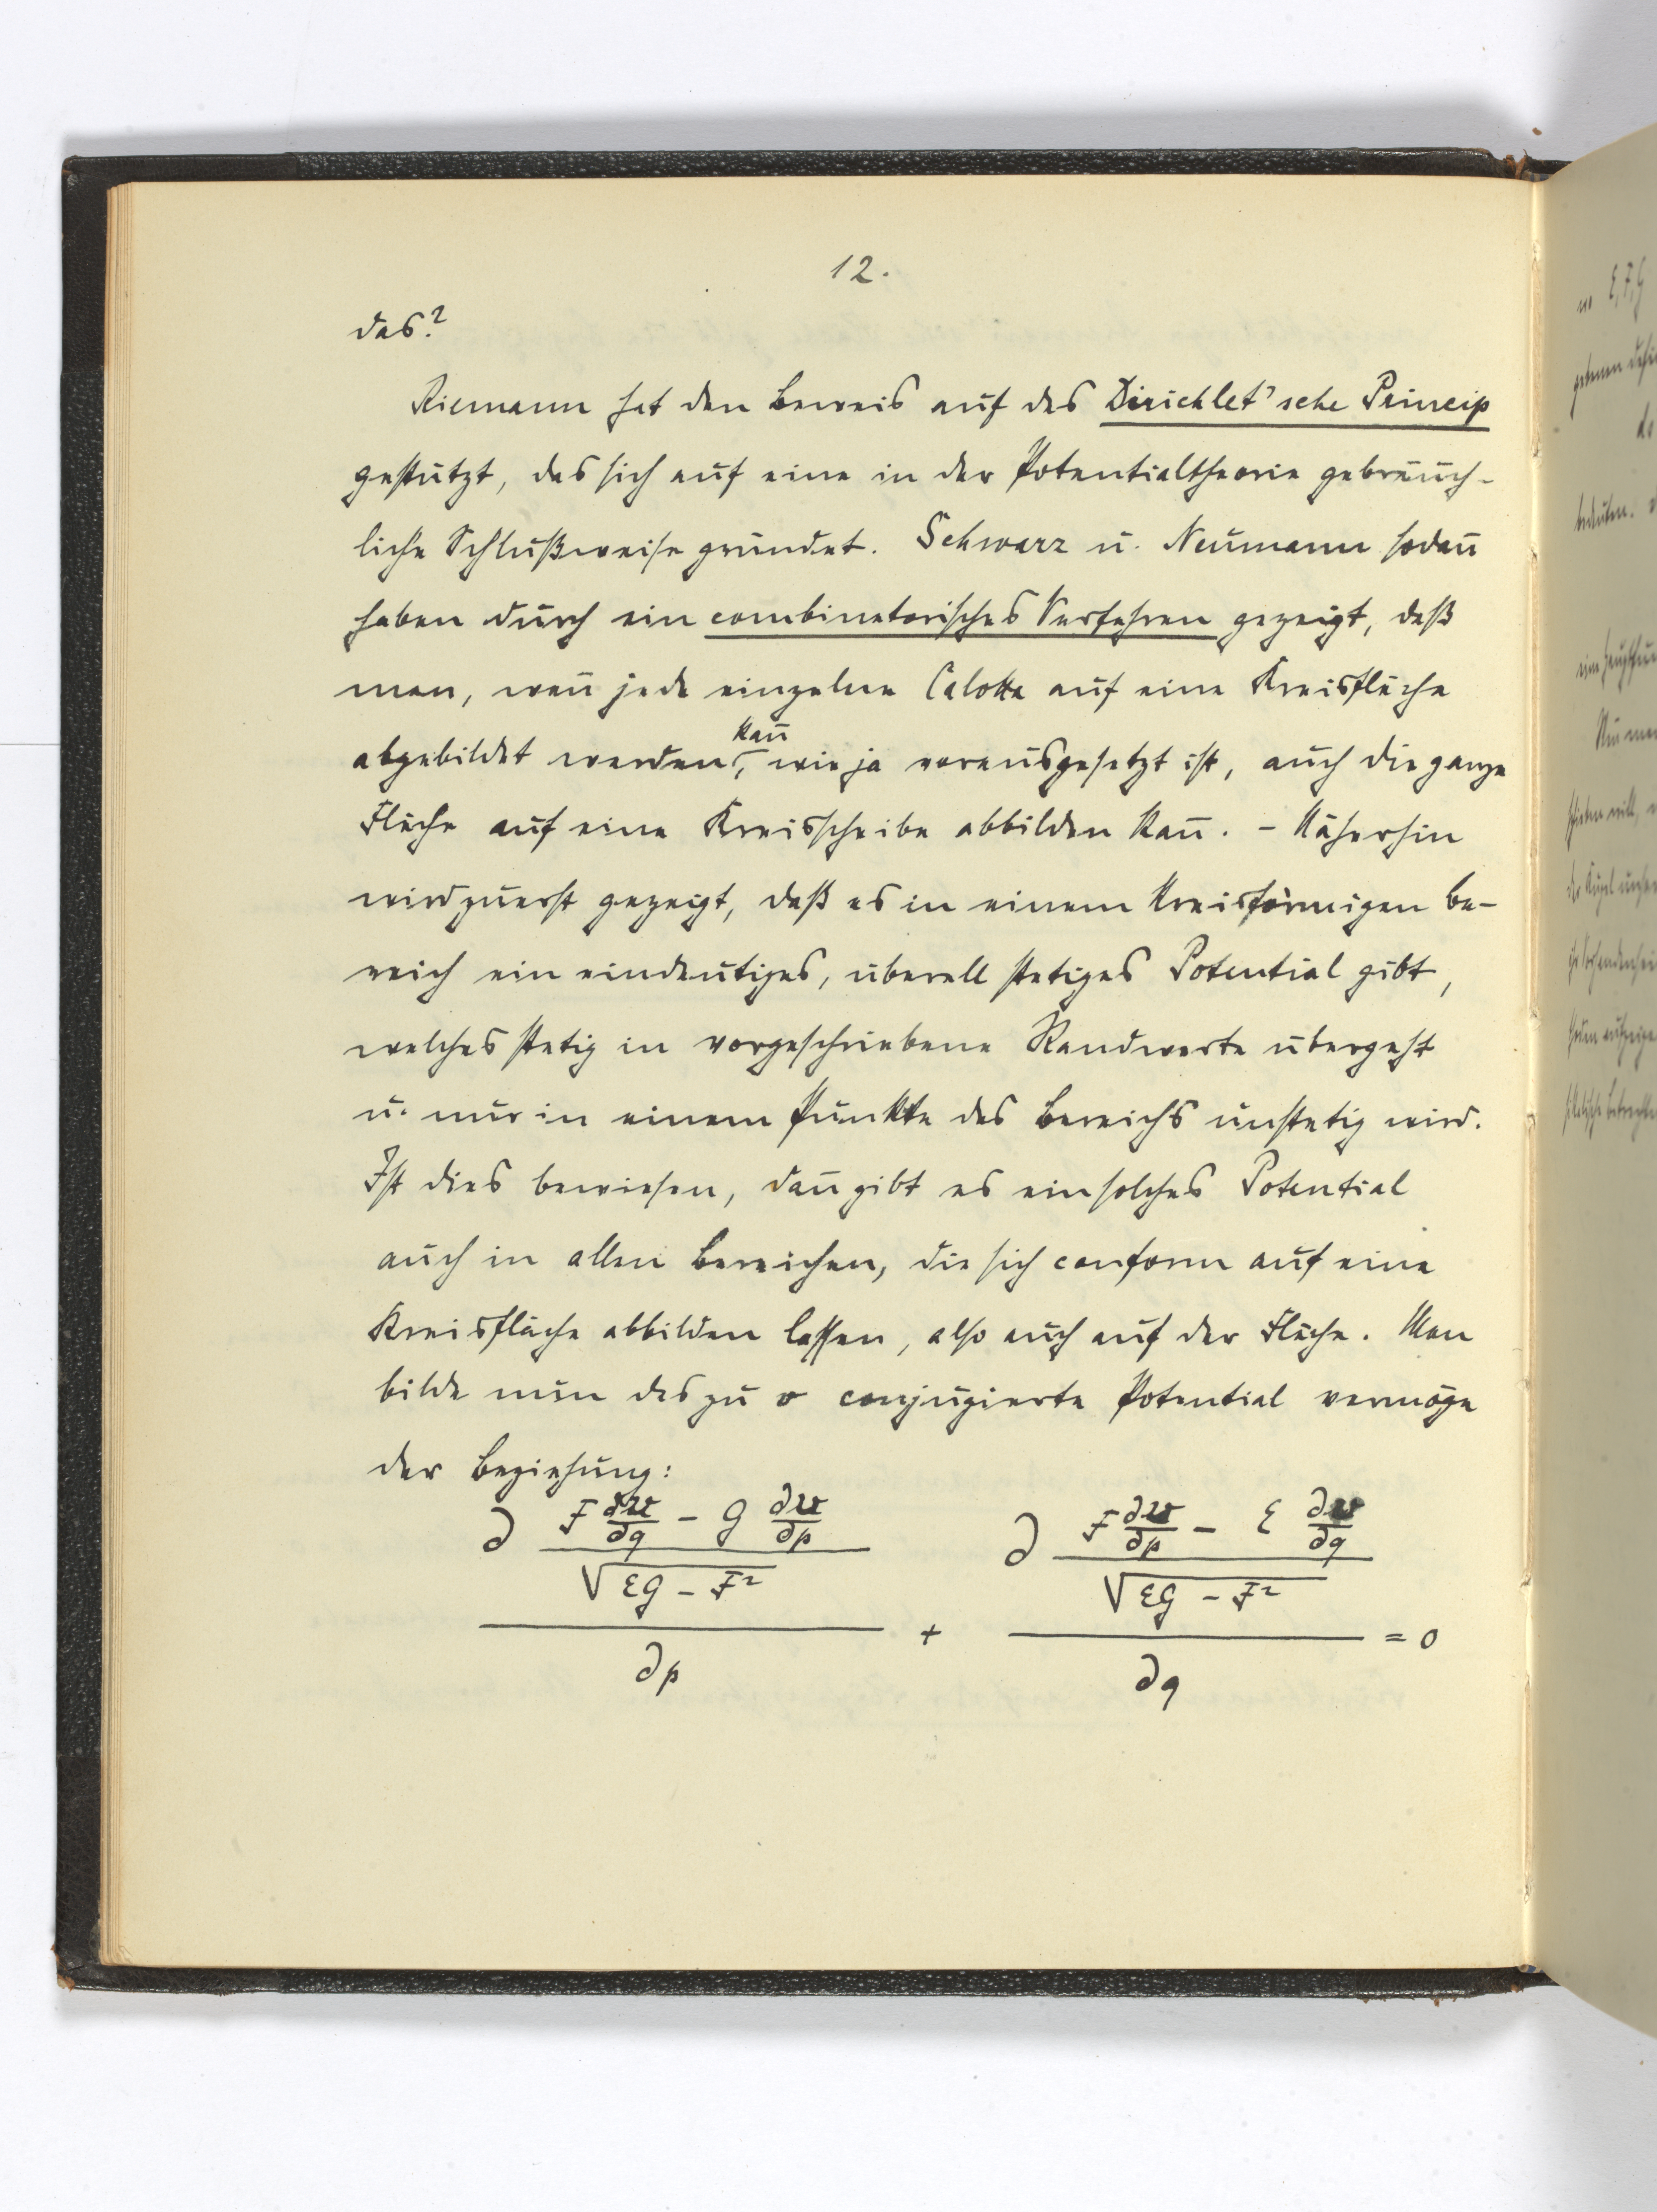 12.
das?
Riemann hat den Beweis auf das Dirichlet'sche Princip
gestützt, das sich auf eine in der Potentialtheorie gebräuch-
liche Schlußweise gründet. Schwarz u. Neumann sodan̄
haben durch ein combinatorisches Verfahren gezeigt, daß
man, wen̄ jede einzelne Calotte auf eine Kreisfläche
abgebildet werden kan̄, wie ja vorausgesetzt ist, auch die ganze
Fläche auf eine Kreisscheibe abbilden kan̄. - Näherhin
wird zuerst gezeigt, daß es in einem kreisförmigen Be-
reich ein eindeutiges, überall stetiges Potential gibt,
welches stetig in vorgeschriebene Randwerte übergeht
u. nur in einem Punkte des Bereichs unstetig wird.
Ist dies bewiesen, dan̄ gibt es ein solches Potential
auch in allen Bereichen, die sich conform auf eine
Kreisfläche abbilden lassen, also auch auf der Fläche. Man
bilde nun das zu v conjugierte Potential vermöge
der Beziehung:
∂ (F ∂v/∂q − G ∂v/∂p)/√(EG − F²) / ∂p + ∂ (F ∂v/∂p − E ∂v/∂q)/√(EG − F²) / ∂q = 0